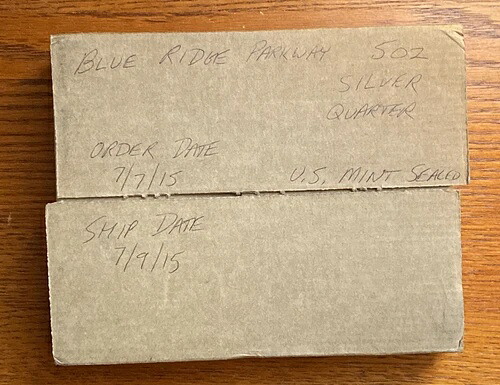 BLUE RIDGE PARKWAY 5OZ
SILVER
QUARTER
ORDER DATE
7/7/15
U.S. MINT SEALED
SHIP DATE
7/9/15